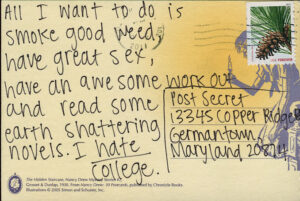 All I want to do is
smoke good weed,
have great sex,
have an awesome work out
and read some
earth shattering
novels. I hate
college.
Post Secret
13345 Copper Ridge
Germantown
Maryland 20874
The Hidden Staircase, Nancy Drew Mystery Stories #2
Grosset & Dunlap, 1930. From Nancy Drew: 30 Postcards, published by Chronicle Books.
Illustrations © 2005 Simon and Schuster, Inc.